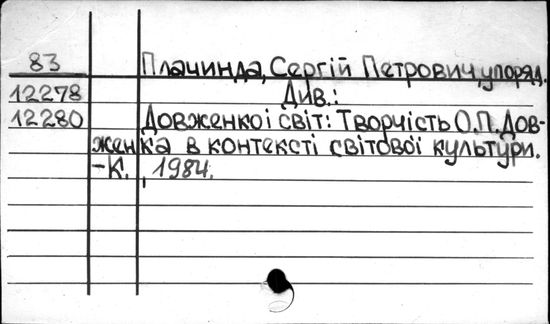 83 Плачинда, Сергій Петрович, упоряд.
12278 Див.:
12280 Довженко і світ: Творчість О.П. Дов-
женка в контексті світової культури.
-К., 1984.